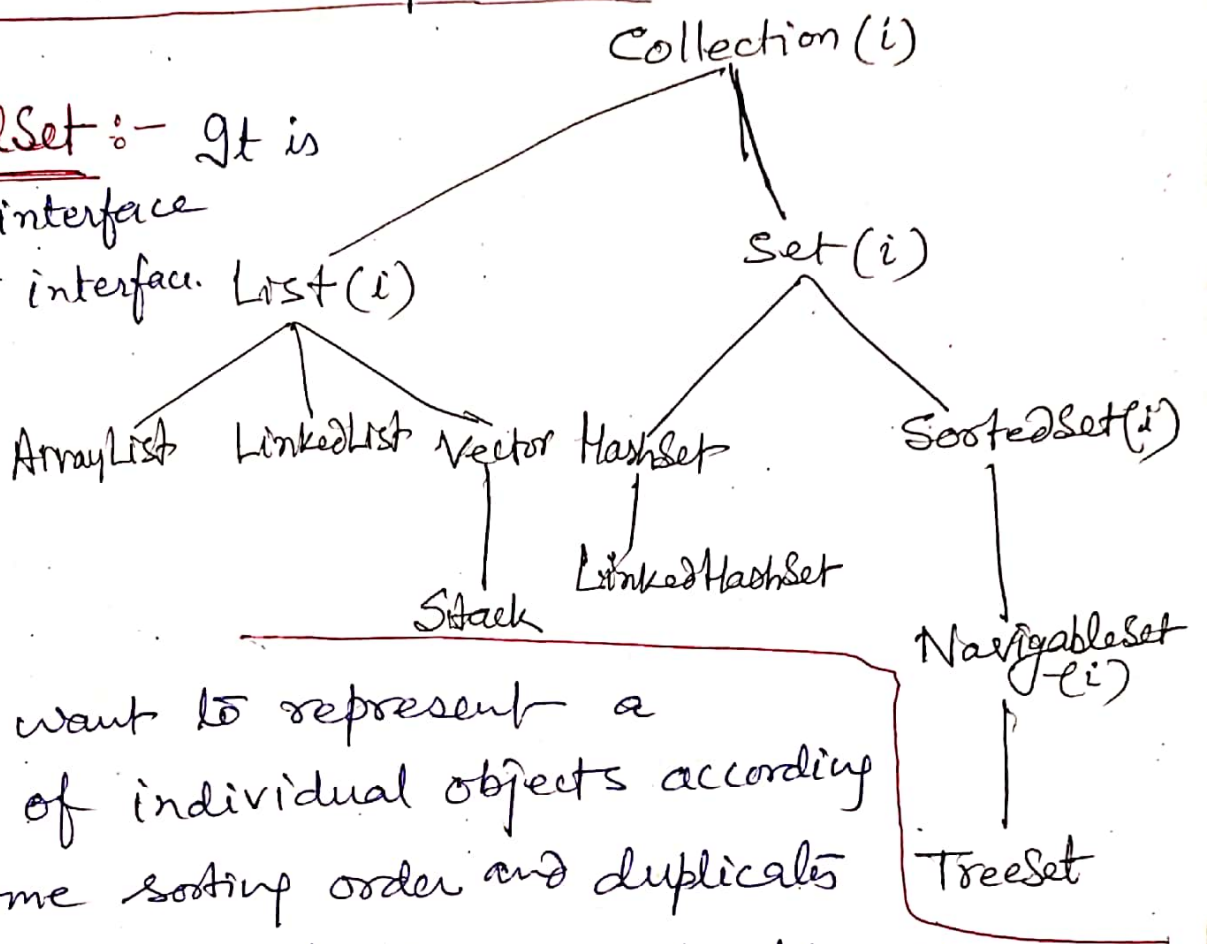 Collection (i)
Set :- It is
interface
interface.
List (i)
Set (i)
ArrayList LinkedList Vector HashSet SortedSet (i)
Stack
LinkedHashSet
NavigableSet
(i)
TreeSet
want to represent a
of individual objects according
me sorting order and duplicates